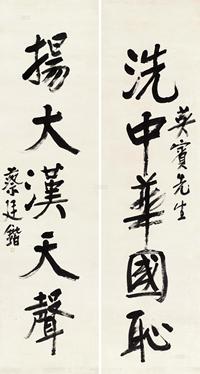 洗中華國恥
英賓先生
揚大漢天聲
蔡廷鍇